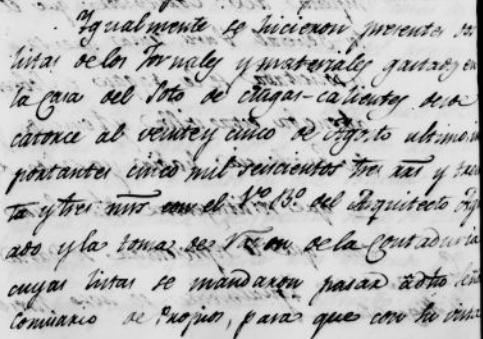 Igualmente se hicieron presentes dos
listas de los Jornales y materiales gastados en
la Casa del Soto de Migas-calientes desde
catorce al veinte y cinco de Agosto ultimo im
portantes cinco mil seiscientos tres rrs y trein
ta y tres mrs con el Vº Bº del Arquitecto
y la toma de Razon de la Contaduria
cuyas listas se mandaron pasar a dho Señor
Comisario de Propios, para que con su vista